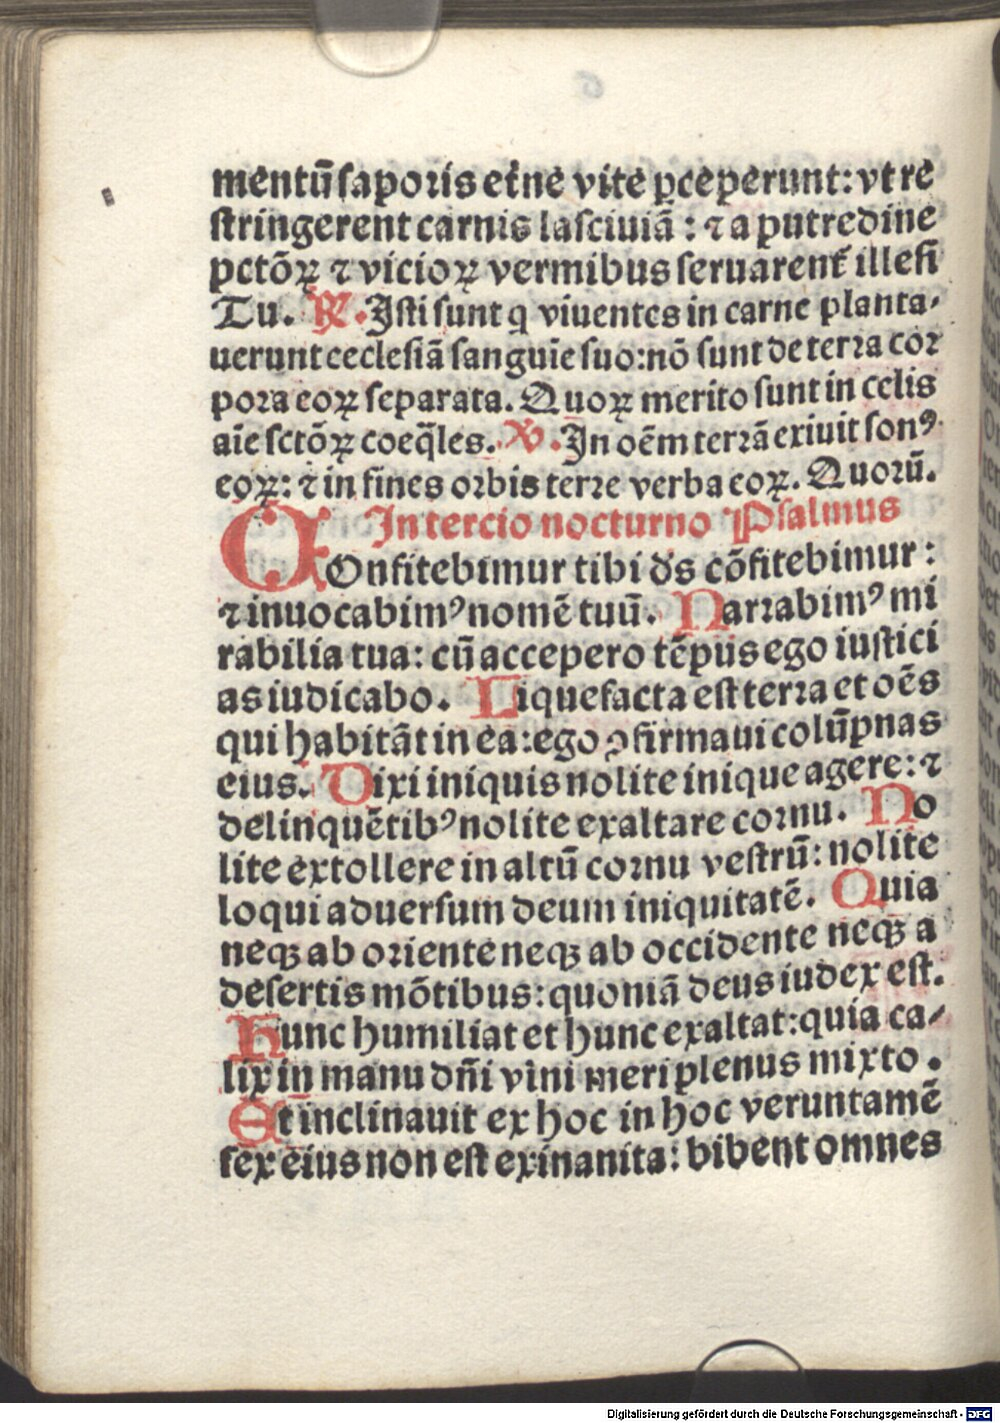 mentū saporis et̄ne vite ꝑceperunt: vt re
stringerent carnis lasciuiā: ⁊ a putredine
pctōꝝ ⁊ vicioꝝ vermibus seruarent̄ illesi
Tu. ℟. Isti sunt q viuentes in carne planta⸗
uerunt ecclesiā sanguīe suo: nō sunt de terra cor
pora eoꝝ separata. Quoꝝ merito sunt in celis
aīe sctōꝝ coeq̄les. ℣. In oēm terrā exiuit sonꝰ
eoꝝ: ⁊ in fines orbis terre verba eoꝝ. Quorū.
In tercio nocturno Psalmus
COnfitebimur tibi ds̄ cōfitebimur:
⁊ inuocabimꝰ nomē tuū. Narrabimꝰ mi
rabilia tua: cū accepero tēpus ego iustici
as iudicabo. Liquefacta est terra et oēs
qui habitāt in ea: ego ꝯfirmaui colūpnas
eius. Dixi iniquis nolite inique agere: ⁊
delinquētibꝰ nolite exaltare cornu. No
lite extollere in altū cornu vestrū: nolite
loqui aduersum deum iniquitatē. Quia
neqꝫ ab oriente neqꝫ ab occidente neqꝫ a
desertis mōtibus: quoniā deus iudex est.
Hunc humiliat et hunc exaltat: quia ca⸗
lix in manu dn̄i vini meri plenus mixto.
Et inclinauit ex hoc in hoc veruntamē
fex eius non est exinanita: bibent omnes
Digitalisierung gefördert durch die Deutsche Forschungsgemeinschaft - DFG